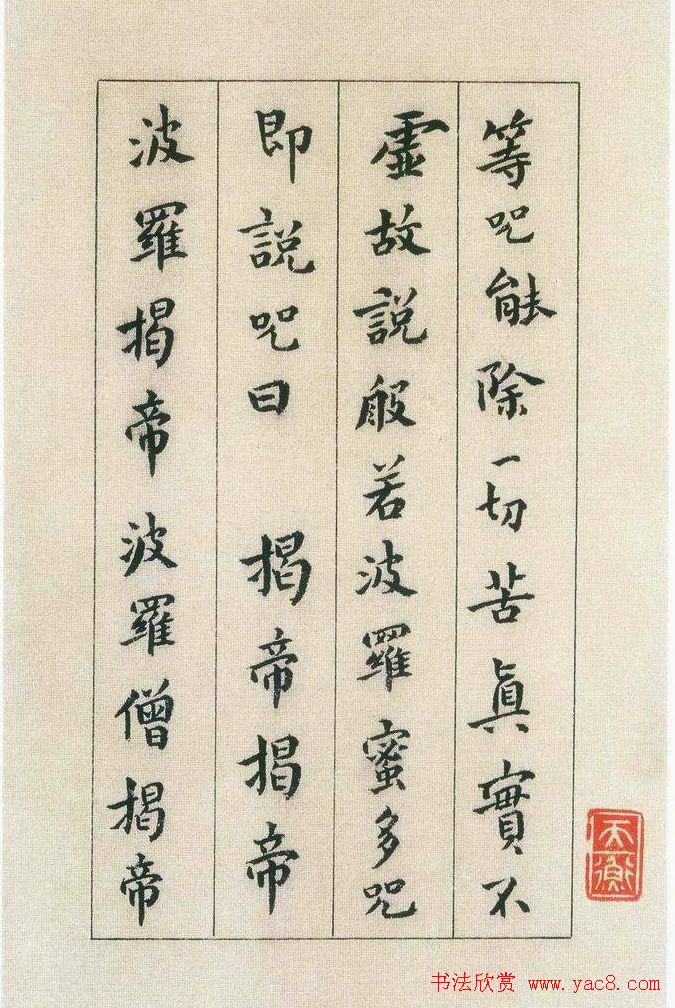 等咒能除一切苦真實不
虛故説般若波羅蜜多咒
即説咒曰　揭帝揭帝
波羅揭帝波羅僧揭帝
天衡
书法欣赏 www.yac8.com